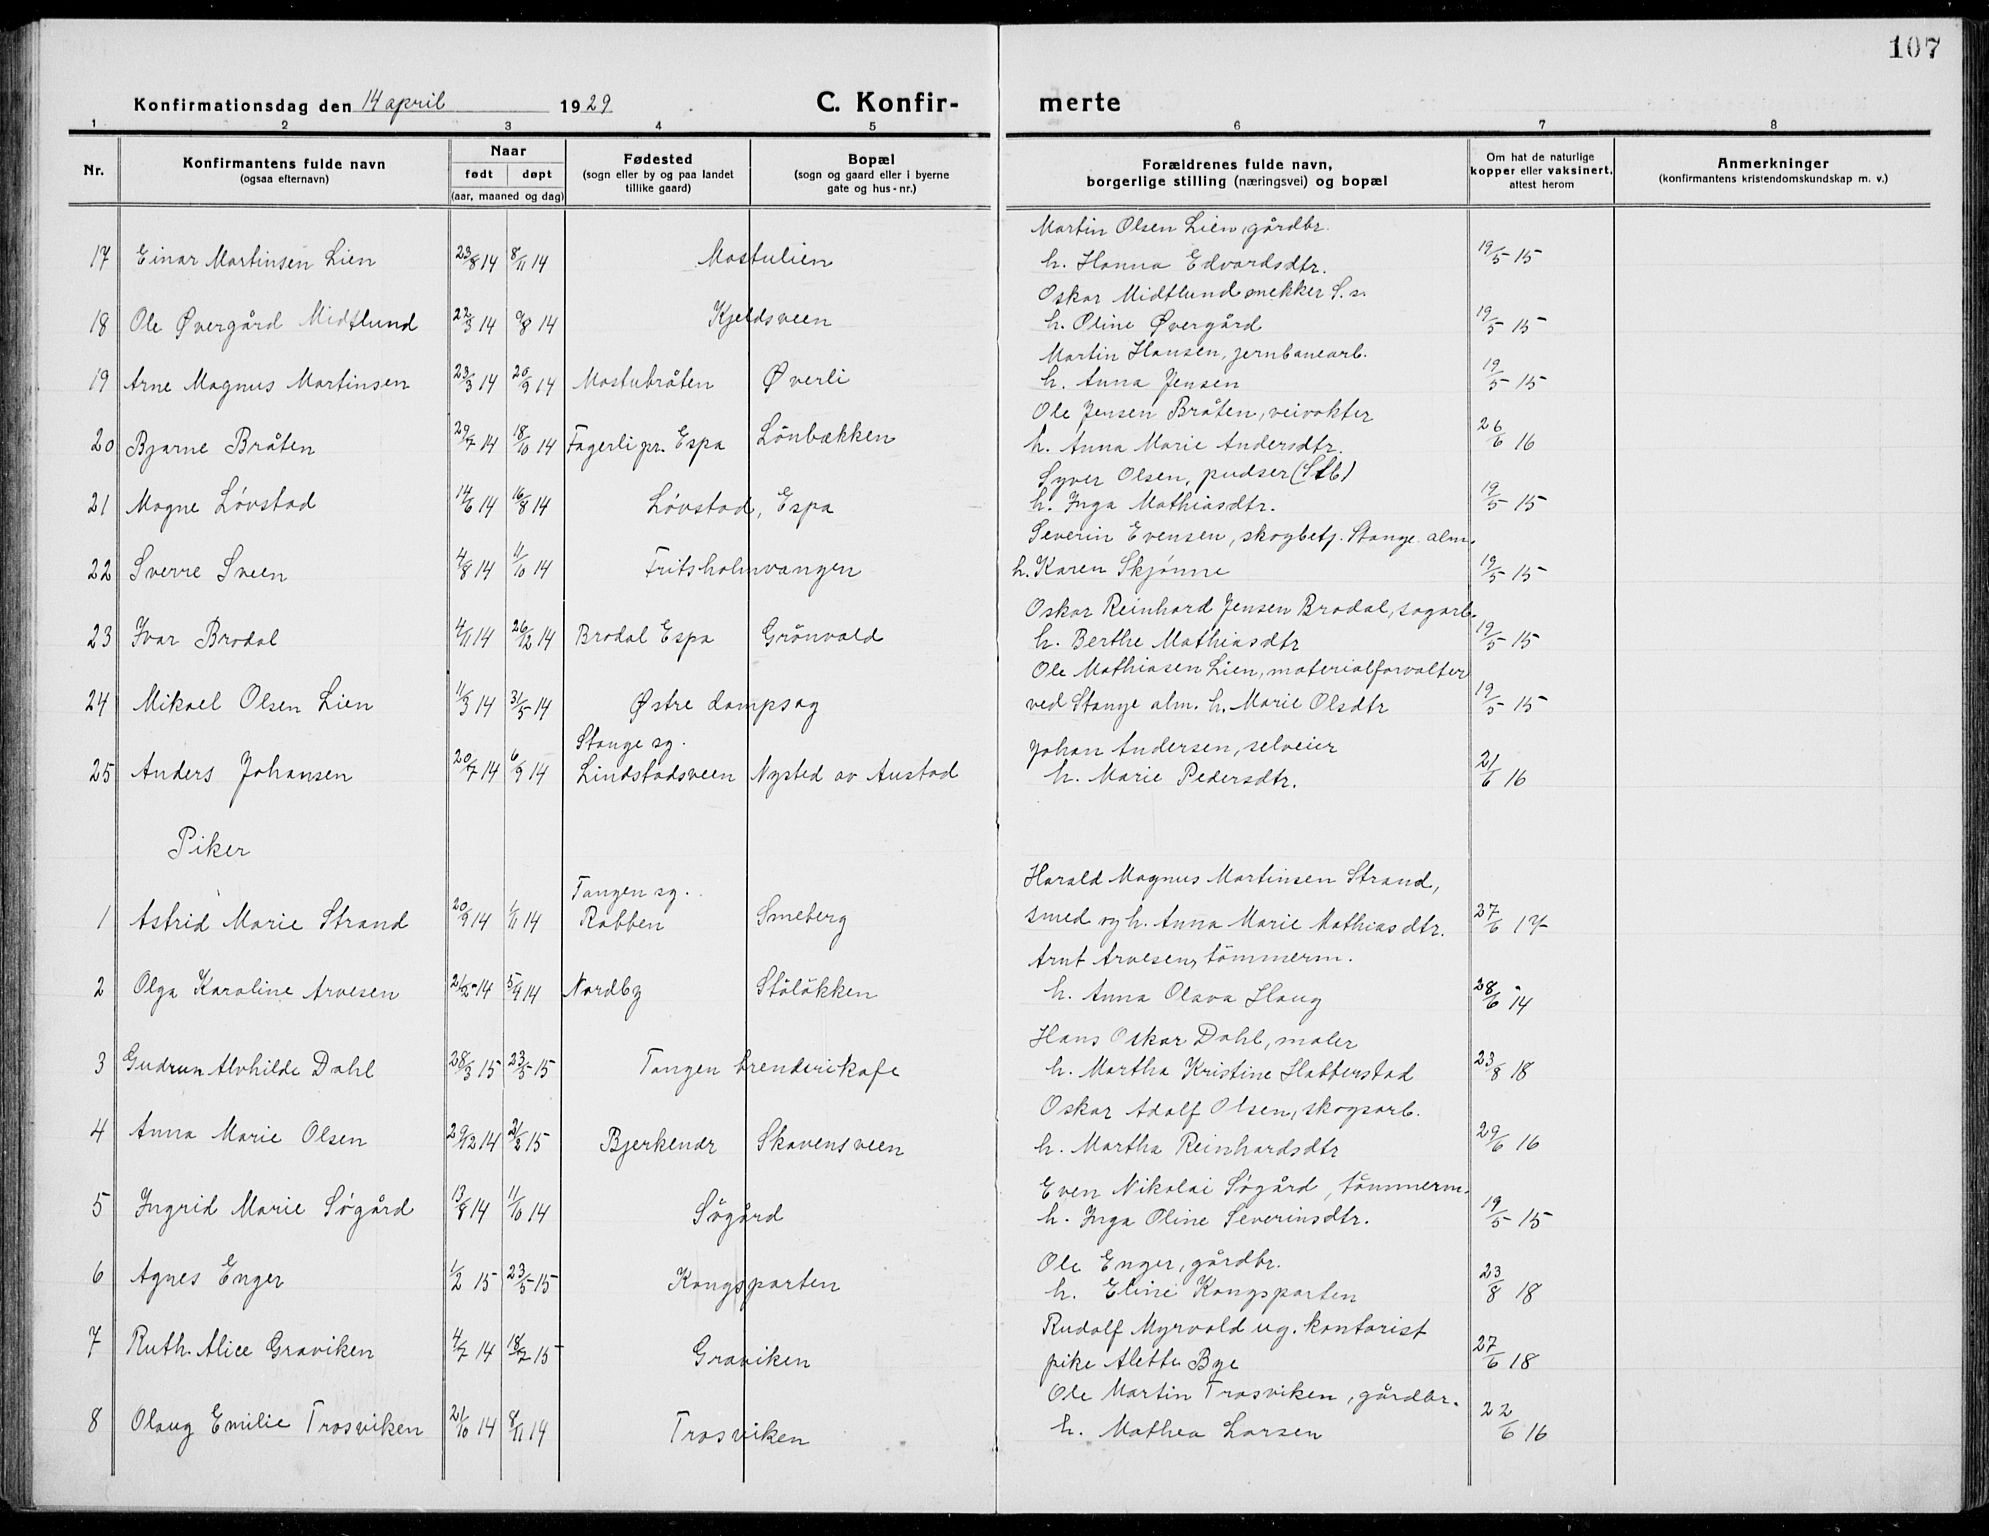 107
Konfirmationsdag den 14 april 1929 C. Konfir- merte
1 2 3 4 5 6 7 8
Nr. Konfirmantens fulde navn (ogsaa efternavn) Naar født døpt (aar, maaned og dag) Fødested (sogn eller by og paa landet tillike gaard) Bopæl (sogn og gaard eller i byerne gate og hus-nr.) Forældrenes fulde navn, borgerlige stilling (næringsvei) og bopæl Om hat de naturlige kopper eller vaksinert, attest herom Anmerkninger (konfirmantens kristendomskundskap m. v.)
Martin Olsen Lien, gårdbr.
17 Einar Martinsen Lien 23/8 14 8/11 14 Mostulien h. Hanna Edvardsdtr. 19/5 15
Oskar Midtlund snekker S. s.
18 Ole Øvergård Midtlund 22/3 14 9/8 14 Kjeldsveen h. Oline Øvergård 19/5 15
Martin Hansen, jernbanearb.
19 Arne Magnus Martinsen 23/3 14 20/9 14 Mostubråten Øverli h. Anna Jensen 19/5 15
Ole Jensen Bråten, veivokter
20 Bjarne Bråten 29/7 14 18/10 14 Fagerli pr. Espa Lönbækken h. Anna Marie Andersdtr. 26/6 16
Syver Olsen, pudser (Stb)
21 Magne Lövstad 14/6 14 16/8 14 Lövstad, Espa h. Inga Mathiasdtr. 19/5 15
Severin Evensen, skogbetj. Stange alm.
22 Sverre Sveen 4/8 14 11/10 14 Fritsholmvangen h. Karen Skjönne 19/5 15
Oskar Reinhard Jensen Brodal, sagarb.
23 Ivar Brodal 4/11 14 26/12 14 Brodal Espa Grönvald h. Berthe Mathiasdtr 19/5 15
Ole Mathiasen Lien, materialforvalter
24 Mikael Olsen Lien 11/3 14 31/5 14 Østre dampsag ved Stange alm. h. Marie Olsdtr 19/5 15
Stange sg. Johan Andersen, selveier
25 Anders Johansen 20/7 14 6/9 14 Lindstadsveen Nysted av Austad h. Marie Pedersdtr. 21/6 16
Piker
Tangen sg. Harald Magnus Martinsen Strand,
1 Astrid Marie Strand 20/9 14 1/11 14 Robben Smeberg smed og h. Anna Marie Mathiasdtr. 27/6 17
Arnt Arvesen, tömmerm.
2 Olga Karoline Arvesen 21/2 14 5/4 14 Nordby Stölökken h. Anna Olava Haug 28/6 14
Hans Oskar Dahl, maler
3 Gudrun Alvhilde Dahl 28/3 15 23/5 15 Tangen brenderikafe h. Martha Kristine Habberstad 23/8 18
Oskar Adolf Olsen, skogsarb.
4 Anna Marie Olsen 29/12 14 21/2 15 Bjerkenær Skavensveen h. Martha Reinhardsdtr 29/6 16
Even Nikolai Sögård, tömmerm.
5 Ingrid Marie Sögård 13/8 14 11/10 14 Sögård h. Inga Oline Severinsdtr. 19/5 15
Ole Enger, gårdbr.
6 Agnes Enger 1/2 15 23/5 15 Kongsparten h. Eline Kongsparten 23/8 18
Rudolf Myrvold ug. kontorist
7 Ruth Alice Graviken 4/7 14 18/7 15 Graviken pike Alette Bye 27/6 18
Ole Martin Trosviken, gårdbr.
8 Olaug Emilie Trosviken 21/10 14 8/11 14 Trosviken h. Mathea Larsen 22/6 16